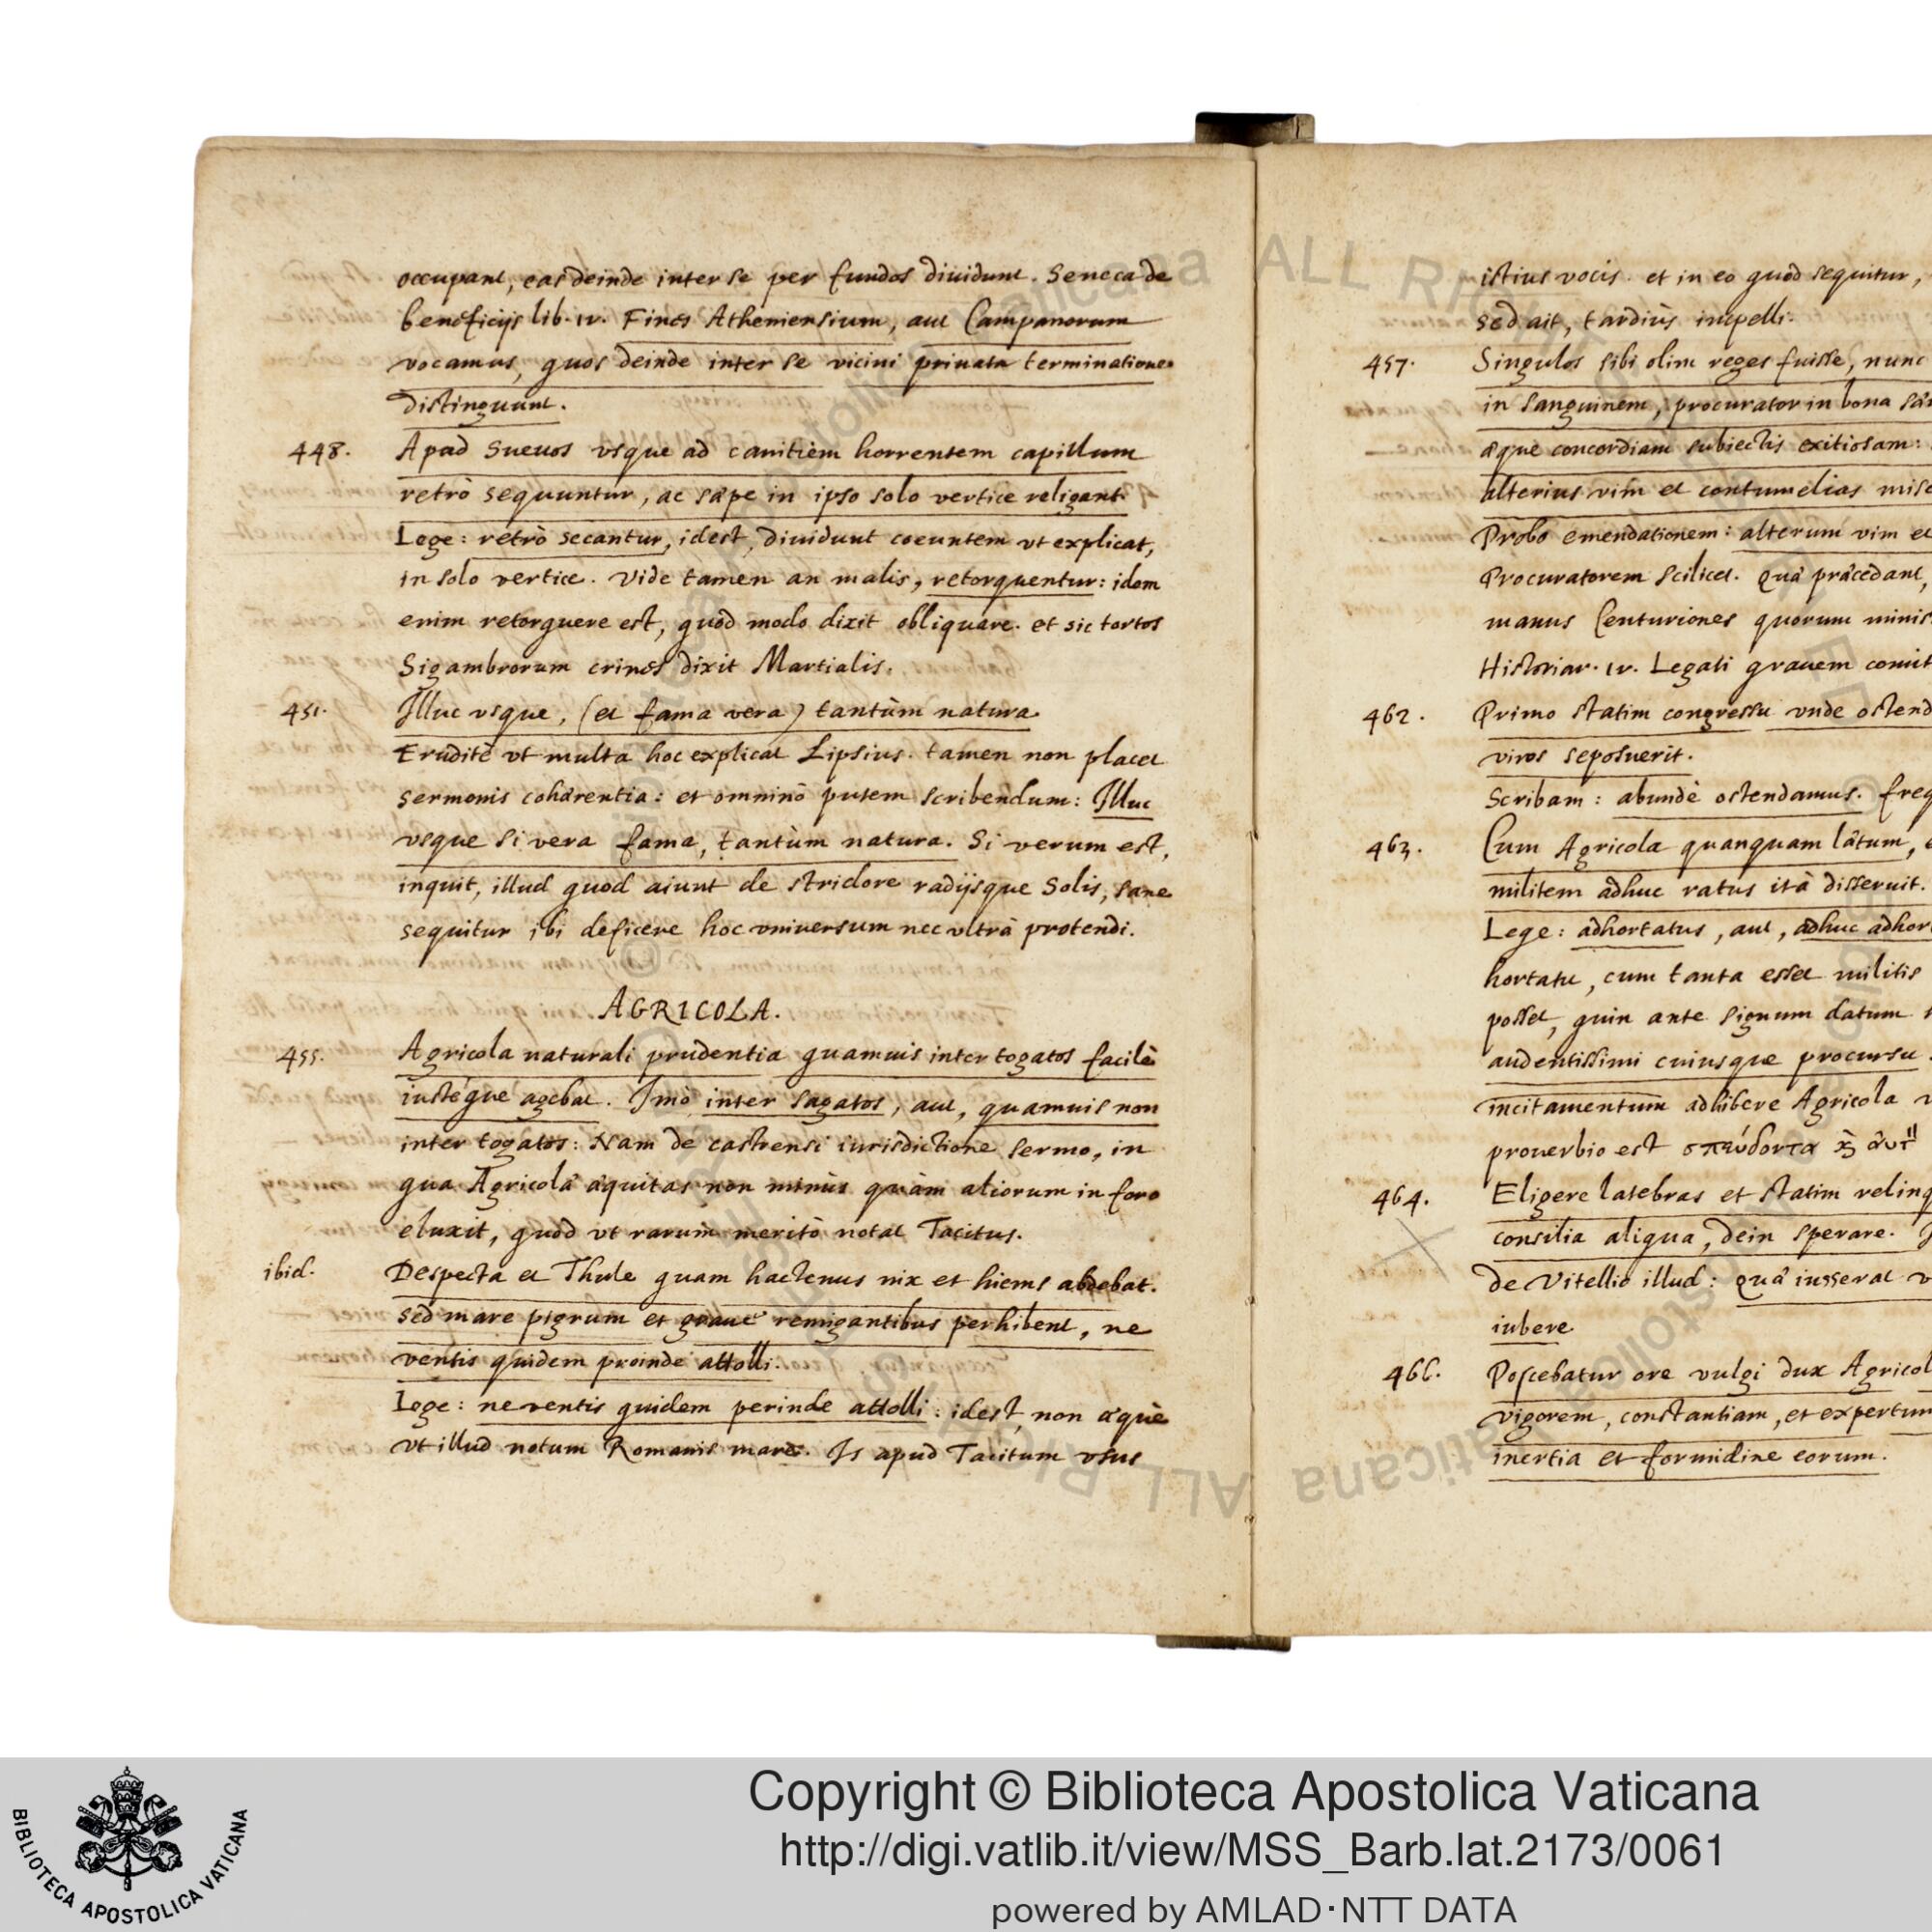 occupant, eas deinde inter se per fundos diuidunt. Seneca de
beneficijs lib. IV. Fines Atheniensium, aut Campanorum
vocamus, quos deinde inter se vicini priuata terminatione
distinguunt.
448. Apud Sueuos vsque ad canitiem horrentem capillum
retrò sequuntur, ac sæpe in ipso solo vertice religant.
Lege: retrò secantur, idest, diuidunt coeuntem vt explicat,
in solo vertice. Vide tamen an malis, retorquentur: idem
enim retorquere est, quod modo dixit obliquare. et sic tortos
Sigambrorum crines dixit Martialis.
451. Illuc vsque, (et fama vera) tantùm natura.
Eruditè vt multa hoc explicat Lipsius. tamen non placet
sermonis cohærentia: et omninò putem scribendum: Illuc
vsque si vera fama, tantùm natura. Si verum est,
inquit, illud quod aiunt de stridore radijsque Solis, sane
sequitur ibi deficere hoc vniuersum nec vltrà protendi.
AGRICOLA.
455. Agricola naturali prudentia quamuis inter togatos facilè
iustéque agebat. Imò inter sagatos, aut, quamuis non
inter togatos: Nam de castrensi iurisdictione sermo, in
qua Agricolæ æquitas non minùs quàm aliorum in foro
eluxit, quod vt rarum meritò notat Tacitus.
ibid. Despecta et Thule quam hactenus nix et hiems abdebat.
sed mare pigrum et graue remigantibus perhibent, ne
ventis quidem proinde attolli.
Lege: ne ventis quidem perinde attolli: idest, non æquè
vt illud notum Romanis mare. Is apud Tacitum vsus
istius vocis. et in eo quod sequitur,
sed ait, tardiùs impelli.
457. Singulos sibi olim reges fuisse, nunc
in sanguinem, procurator in bona
æque concordiam subiectis exitiosam:
alterius vim et contumelias
Probo emendationem: alterum vim et
Procuratorem scilicet. Quâ præcedant,
manus Centuriones quorum
Historiar. IV. Legati grauem
462. Primo statim congressu vnde
viros seposuerit.
Scribam: abundè ostendamus.
463. Cum Agricola quanquam lætum,
militem adhuc ratus ità disseruit.
Lege: adhortatus, aut, adhuc
hortatu, cum tanta esset militis
posset, quin ante signum datum
audentissimi cuiusque procursu
incitamentum adhibere Agricola
prouerbio est σπεύδοντα
464. Eligere latebras et statim
consilia aliqua, dein sperare.
de Vitellio illud: quæ iusserat
iubere
466. Poscebatur ore vulgi dux
vigorem, constantiam, et expertum
inertia et formidine eorum.
Copyright © Biblioteca Apostolica Vaticana
http://digi.vatlib.it/view/MSS_Barb.lat.2173/0061
powered by AMLAD·NTT DATA
BIBLIOTECA APOSTOLICA VATICANA